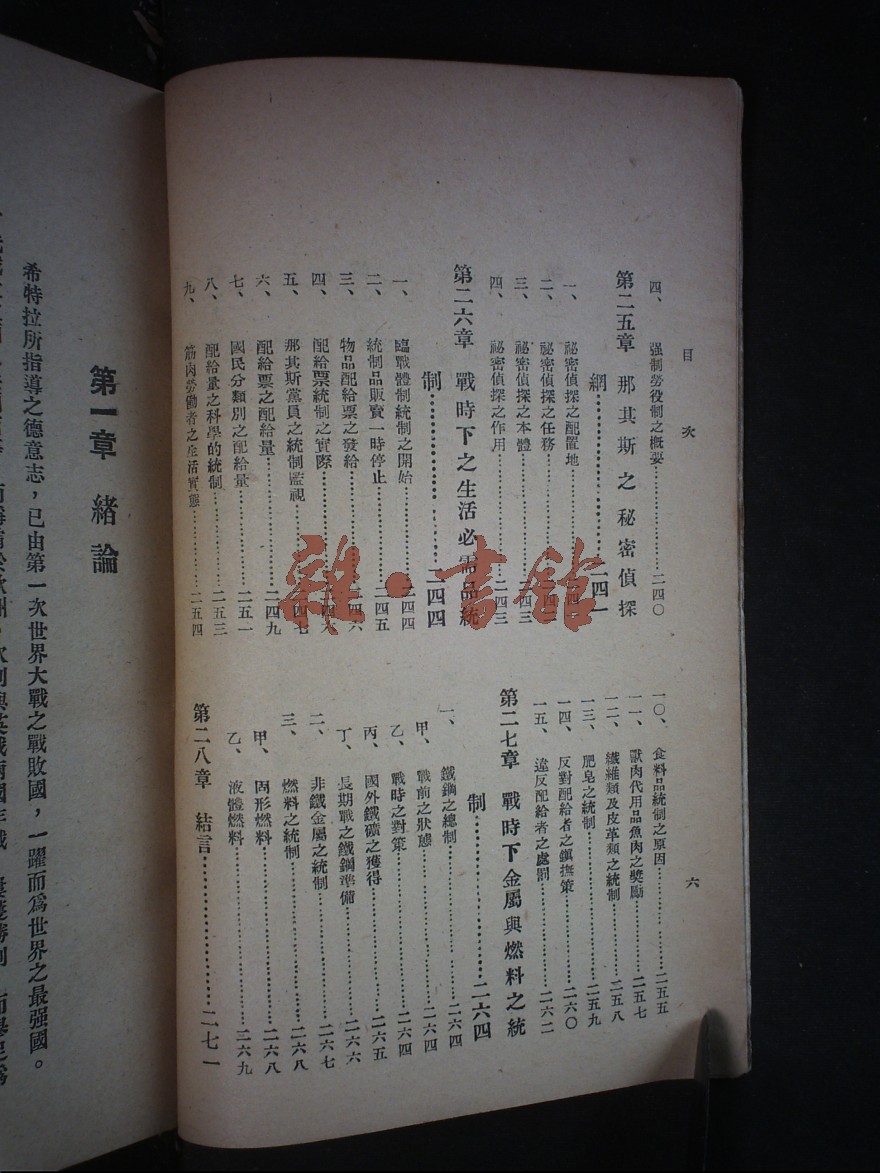 目次
六
四、强制勞役制之概要……二四〇
第二五章 那其斯之秘密偵探
網……二四一
一、祕密偵探之配置地
二、祕密偵探之任務
三、祕密偵探之本體……二四三
四、祕密偵探之作用……二四三
第二六章 戰時下之生活必需品統
制……二四四
一、臨戰體制統制之開始……二四四
二、統制品販賣一時停止……二四五
三、物品配給票之發給……二四六
四、配給票統制之實際……二四六
五、那其斯黨員之統制監視……二四七
六、配給票之配給量……二四九
七、國民分類別之配給量……二五一
八、配給量之科學的統制……二五三
九、筋肉勞働者之生活實態……二五四
一〇、食料品統制之原因……二五五
一一、獸肉代用品魚肉之奬勵……二五七
一二、纖維類及皮革類之統制……二五八
一三、肥皂之統制……二五九
一四、反對配給者之鎭撫策……二六〇
一五、違反配給者之處罰……二六二
第二七章 戰時下金屬與燃料之統
制……二六四
一、鐵鋼之總制……二六四
甲、戰前之狀態……二六四
乙、戰時之對策……二六四
丙、國外鐵礦之獲得……二六五
丁、長期戰之鐵鋼準備……二六六
二、非鐵金屬之統制……二六七
三、燃料之統制……二六八
甲、固形燃料……二六八
乙、液體燃料……二六九
第二八章 結言……二七一
第一章 緒論
希特拉所指導之德意志，已由第一次世界大戰之戰敗國，一躍而爲世界之最强國。
雜·書館